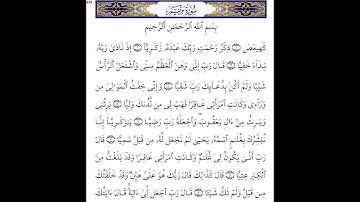 سُورَةُ مَرْيَمَ
بِسْمِ ٱللَّهِ ٱلرَّحْمَٰنِ ٱلرَّحِيمِ
كٓهيعٓصٓ ۝ ذِكْرُ رَحْمَتِ رَبِّكَ عَبْدَهُۥ زَكَرِيَّآ ۝ إِذْ نَادَىٰ رَبَّهُۥ
نِدَآءً خَفِيًّا ۝ قَالَ رَبِّ إِنِّى وَهَنَ ٱلْعَظْمُ مِنِّى وَٱشْتَعَلَ ٱلرَّأْسُ
شَيْبًا وَلَمْ أَكُنۢ بِدُعَآئِكَ رَبِّ شَقِيًّا ۝ وَإِنِّى خِفْتُ ٱلْمَوَٰلِىَ مِن
وَرَآءِى وَكَانَتِ ٱمْرَأَتِى عَاقِرًا فَهَبْ لِى مِن لَّدُنكَ وَلِيًّا ۝ يَرِثُنِى
وَيَرِثُ مِنْ ءَالِ يَعْقُوبَ ۖ وَٱجْعَلْهُ رَبِّ رَضِيًّا ۝ يَٰزَكَرِيَّآ إِنَّا
نُبَشِّرُكَ بِغُلَٰمٍ ٱسْمُهُۥ يَحْيَىٰ لَمْ نَجْعَل لَّهُۥ مِن قَبْلُ سَمِيًّا ۝ قَالَ
رَبِّ أَنَّىٰ يَكُونُ لِى غُلَٰمٌ وَكَانَتِ ٱمْرَأَتِى عَاقِرًا وَقَدْ بَلَغْتُ مِنَ
ٱلْكِبَرِ عِتِيًّا ۝ قَالَ كَذَٰلِكَ قَالَ رَبُّكَ هُوَ عَلَىَّ هَيِّنٌ وَقَدْ خَلَقْتُكَ
مِن قَبْلُ وَلَمْ تَكُ شَيْـًٔا ۝ قَالَ رَبِّ ٱجْعَل لِّىٓ ءَايَةً ۚ قَالَ ءَايَتُكَ